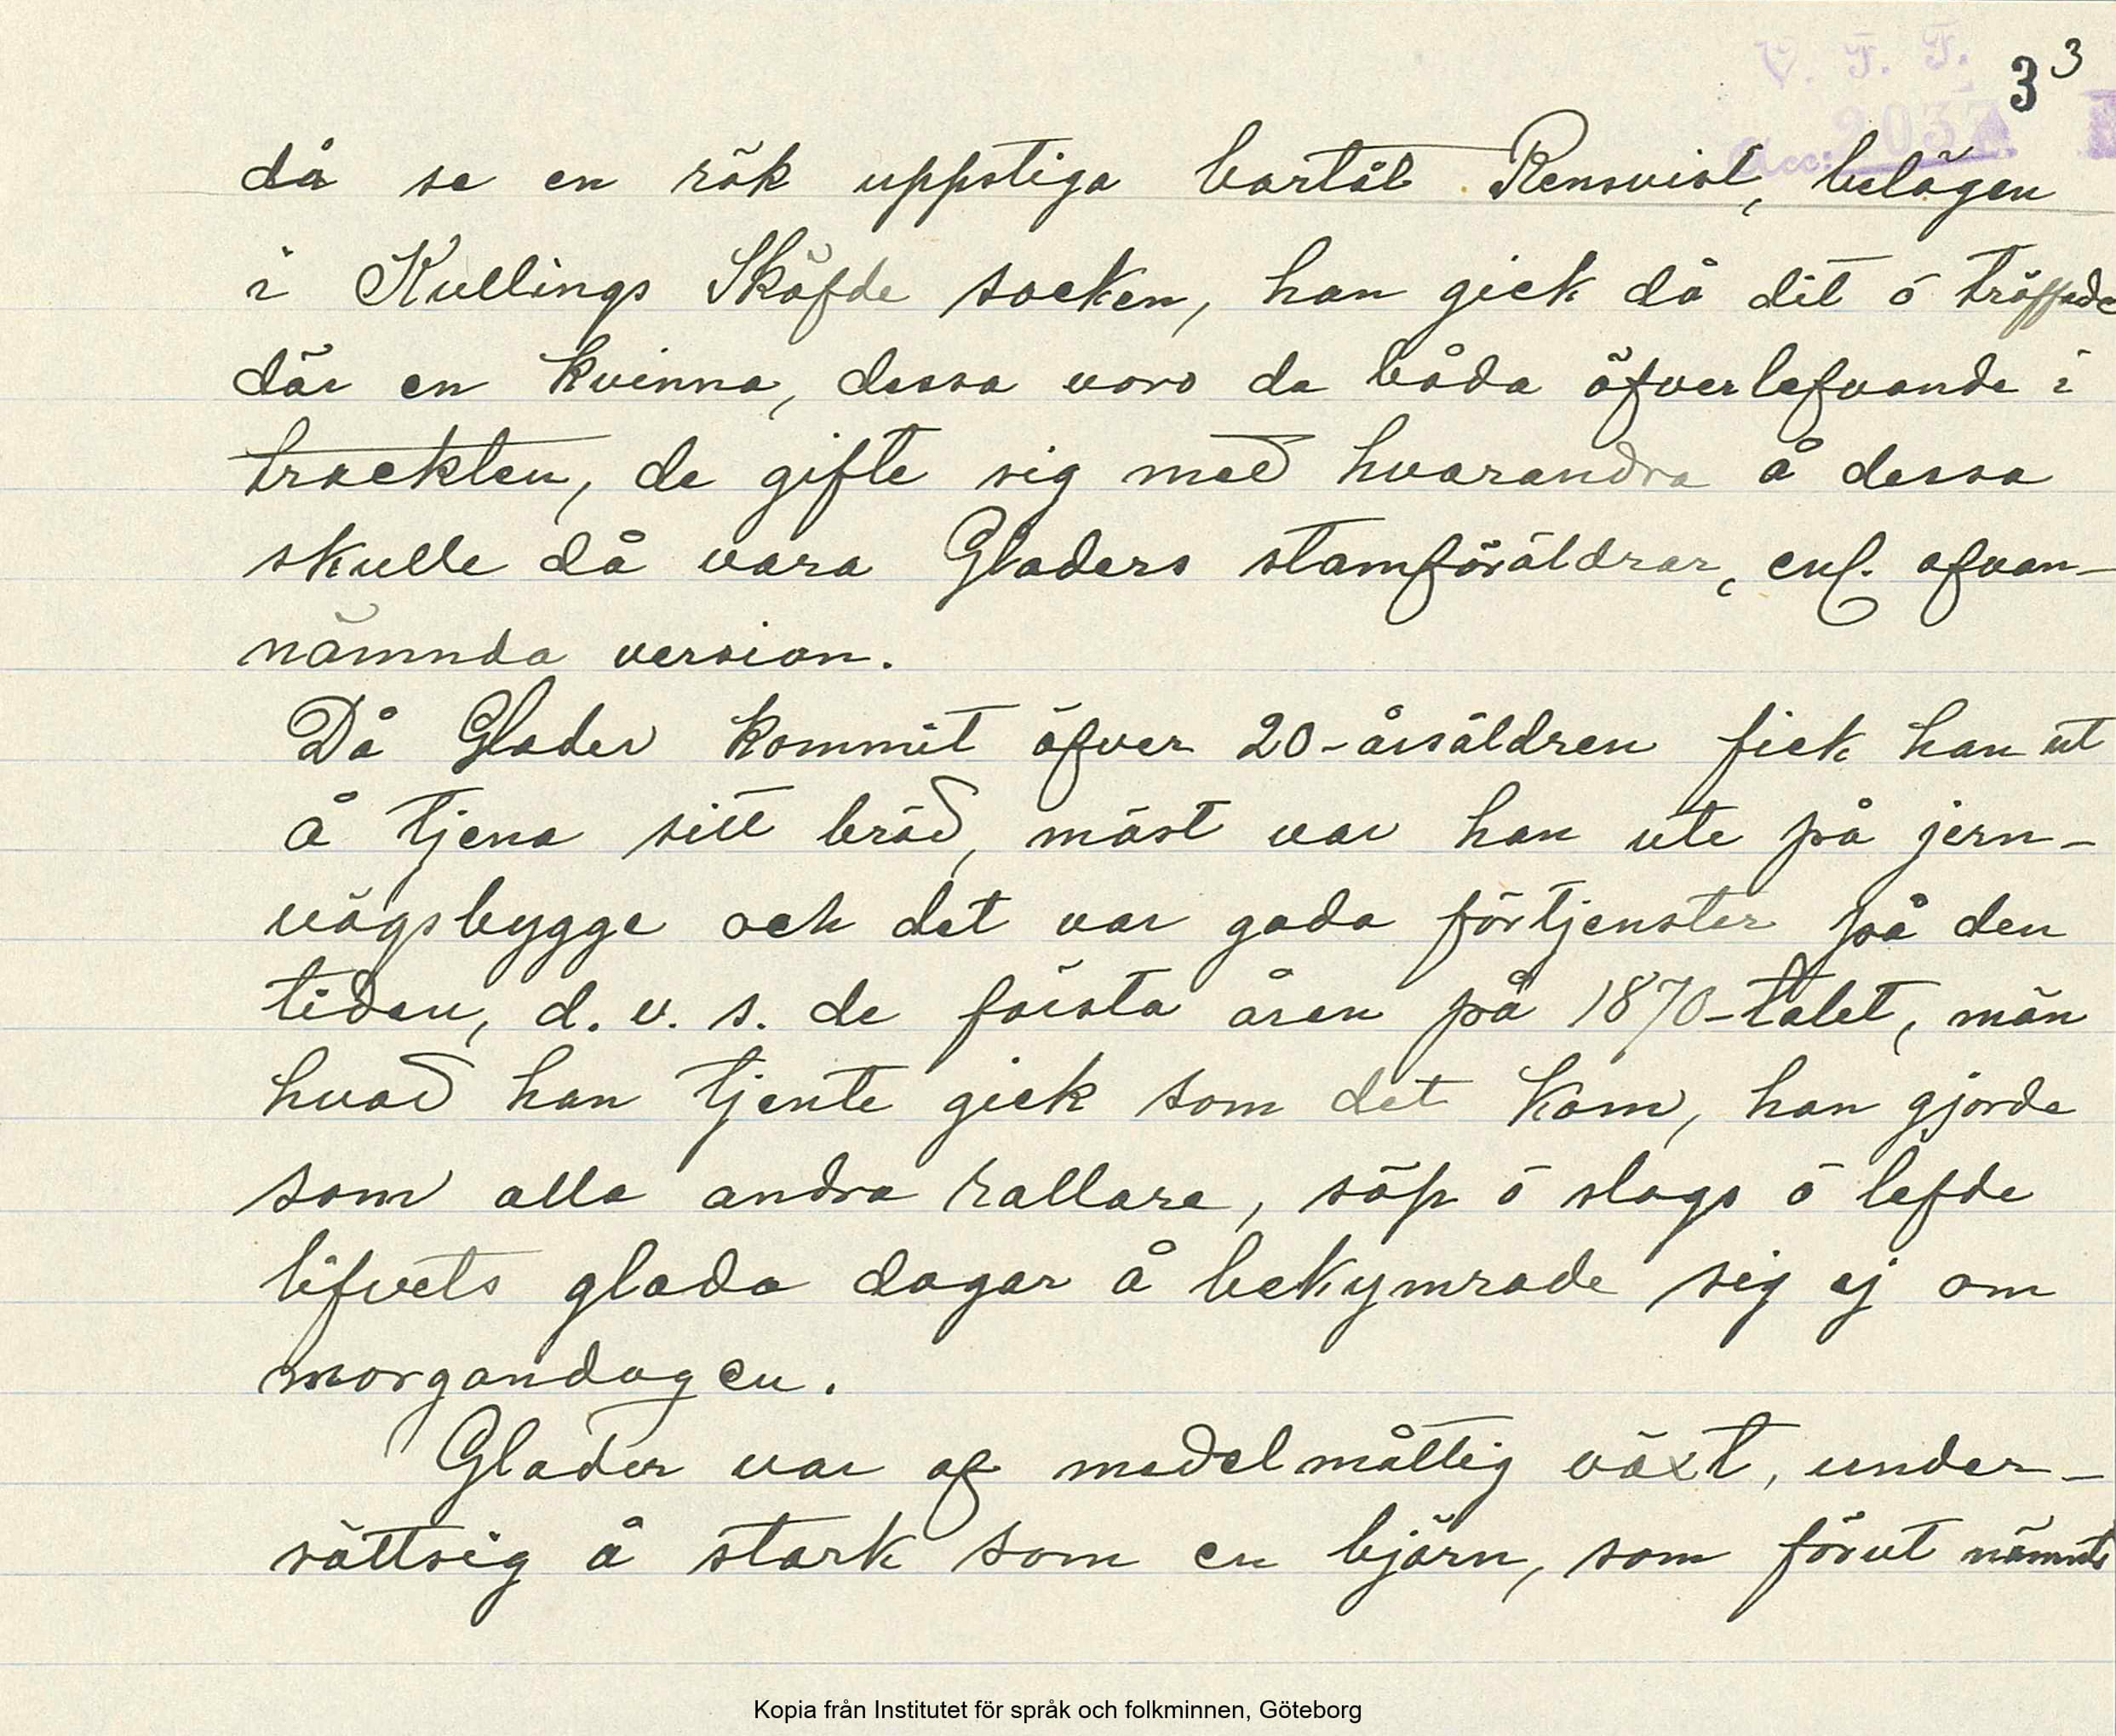 V. F. F.
3 3
Acc: 2037
då se en rök uppstiga bortåt Rensvist, belägen
i Kullings Sköfde socken, han gick då dit ó träffade
där en kvinna, dessa voro de båda öfverlefvande i
trackten, de gifte sig med hvarandra å dessa
skulle då vara Gladers stamföräldrar, enl. ofvan-
nämnda version.
Då Glader kommit öfver 20-årsäldren fick han ut
å tjena sitt bröd, mäst var han ute på jern-
vägsbygge och det var goda förtjenster på den
tiden, d. v. s. de första åren på 1870-talet, män
hvad han tjente gick som det kom, han gjorde
som alla andra rallare, söp ó slogs ó lefde
lifvets glada dagar å bekymrade sig ej om
morgondagen.
Glader var af medelmåttig växt, under-
sättsig å stark som en björn, som förut nämnts
Kopia från Institutet för språk och folkminnen, Göteborg